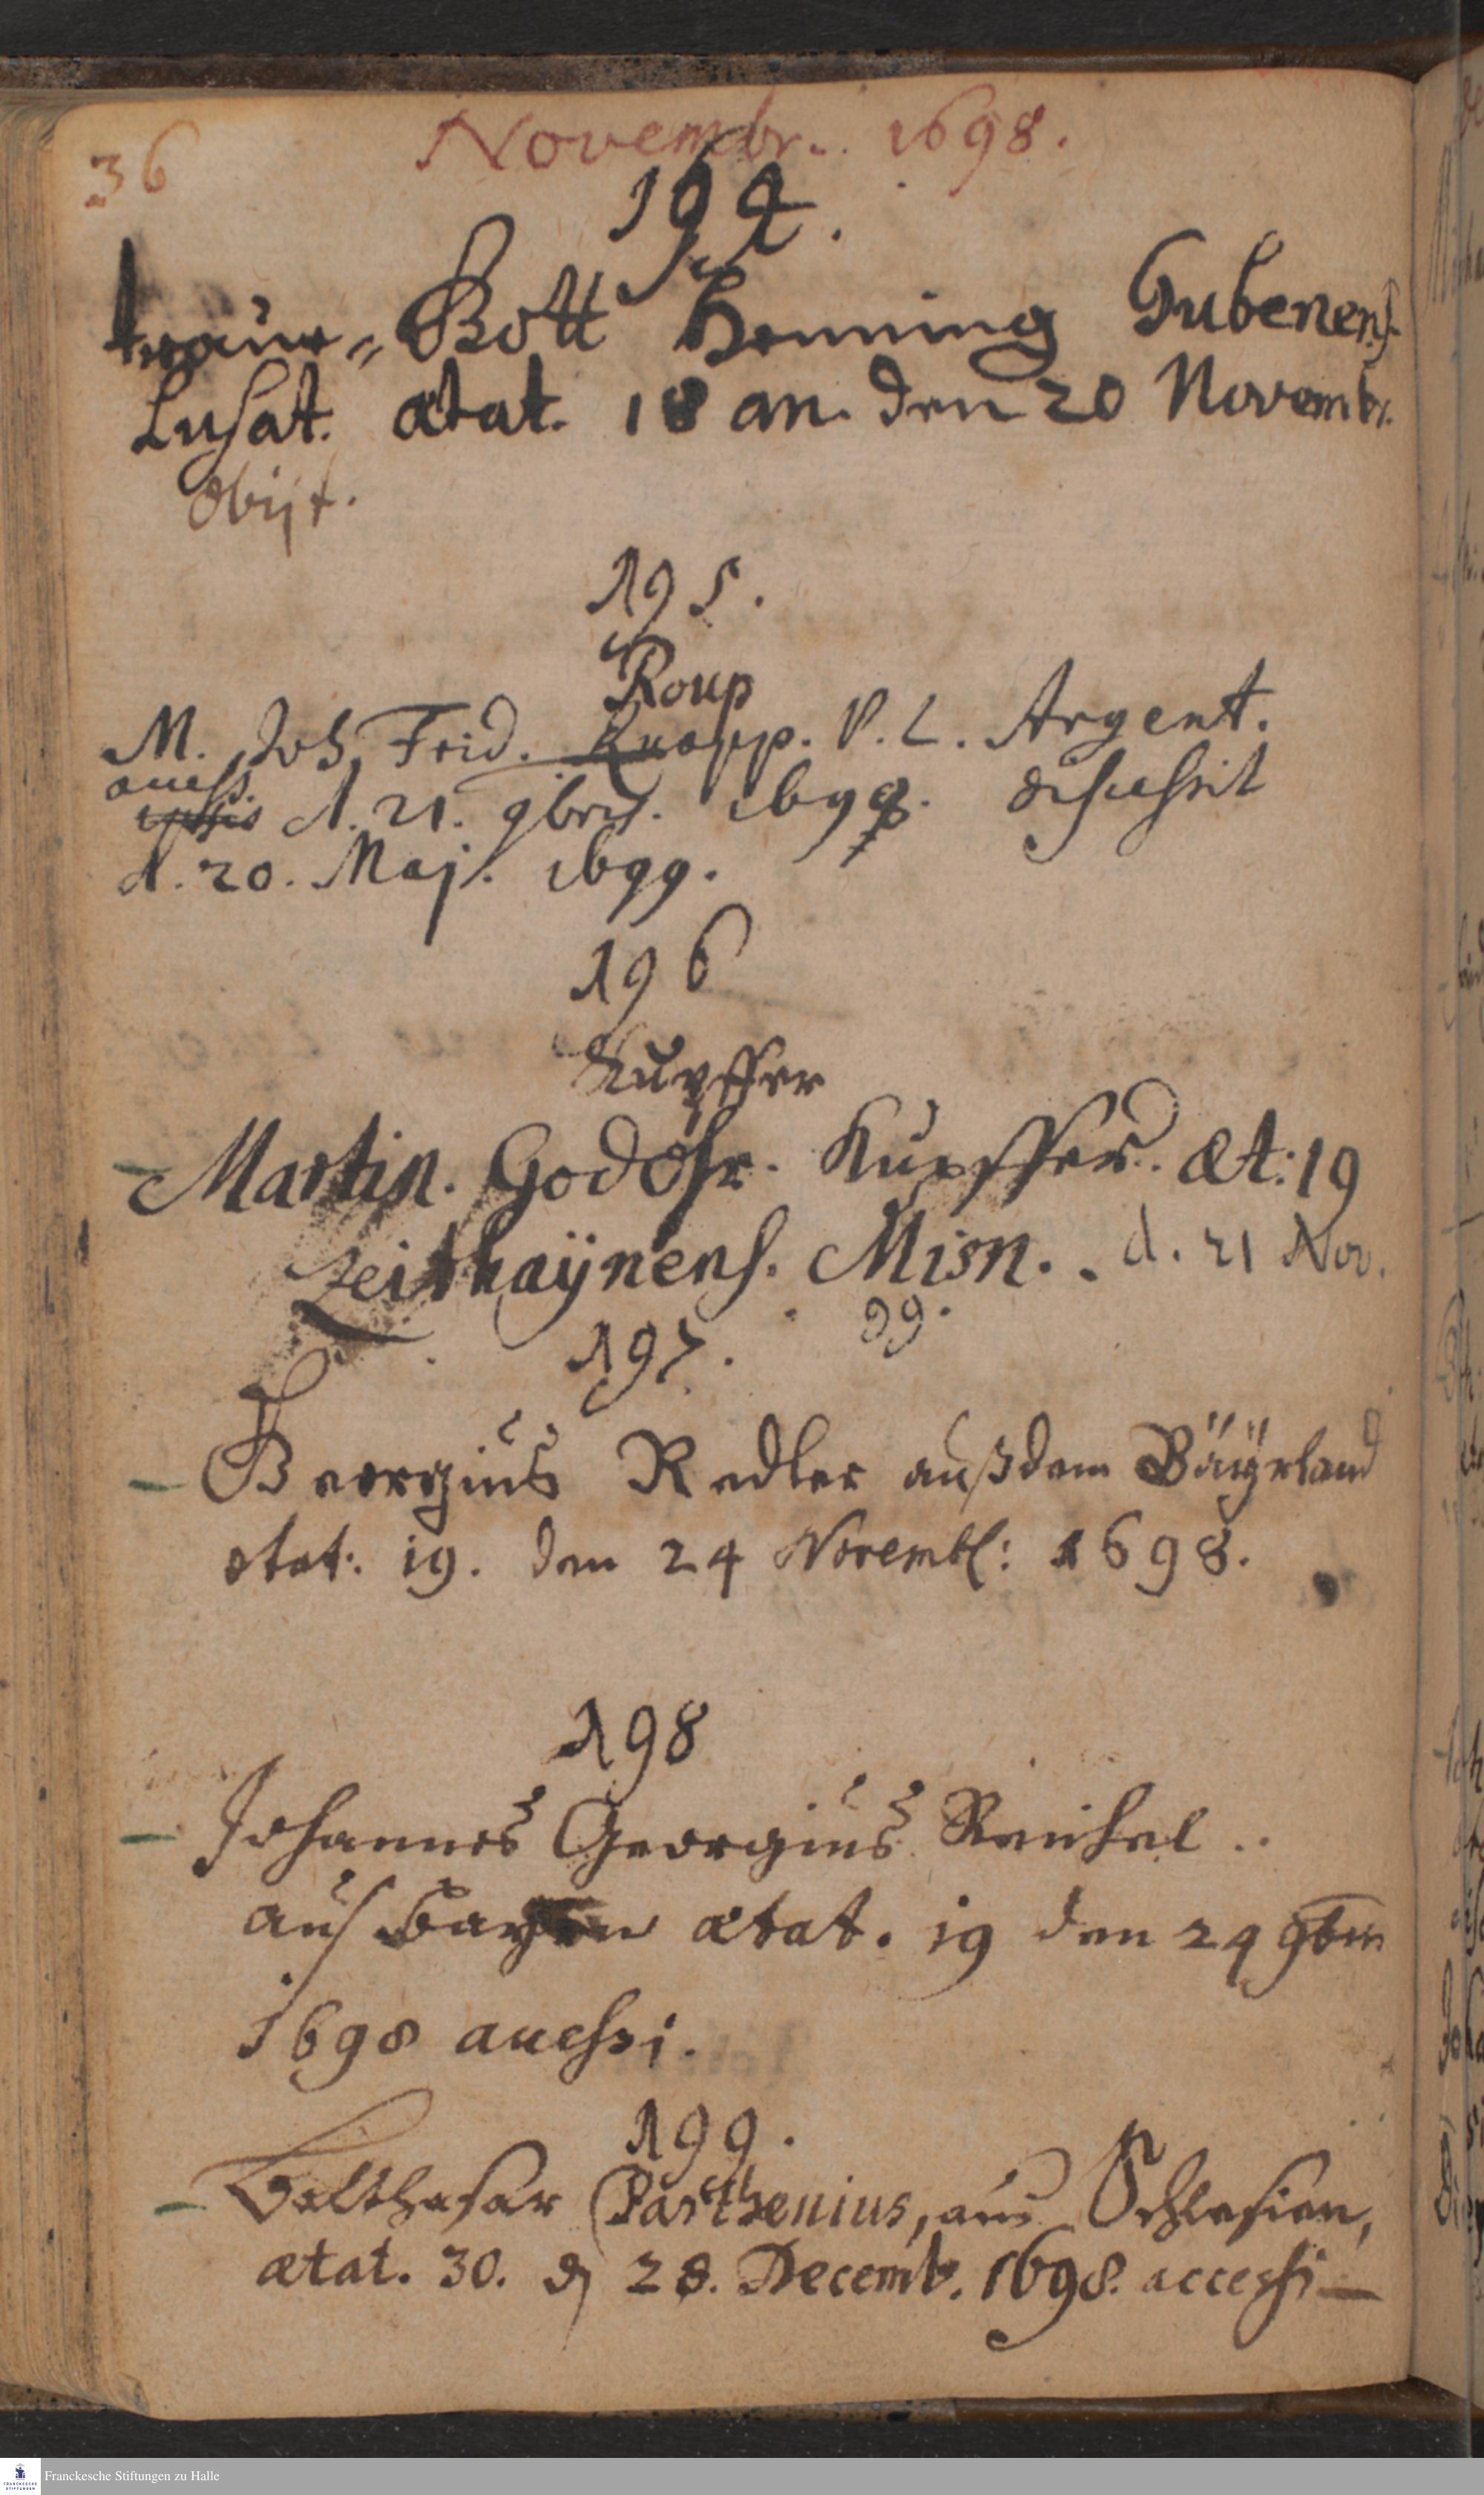 36
Novembr. 1698.
194.
traue-Gott Henning Gubenens.
Lusat. ætat. 18 an. den 20 Novembr.
Obijt.
195.
Roup
M. Joh. Frid. Knopp. P. L. Argent.
access.
d. 21. 9bris. 1698. discessit
d. 20. Maj. 1699.
196
Kupffer
Martin. Godofr. Kupffer. Æt: 19
Zeithaÿnens. Misn. d. 21 Nov.
99.
197.
Georgius Redler auß dem Bäÿrland
ætat: 19. den 24 Novembr: 1698.
198
Johannes Georgius Reichel
aus Bayern ætat. 19 den 24 9br
1698 accessi.
199.
Balthasar Parthenius, aus Schlesien,
ætat. 30. d 28. Decemb. 1698. accessi
Franckesche Stiftungen zu Halle
FRANCKESCHE
STIFTUNGEN